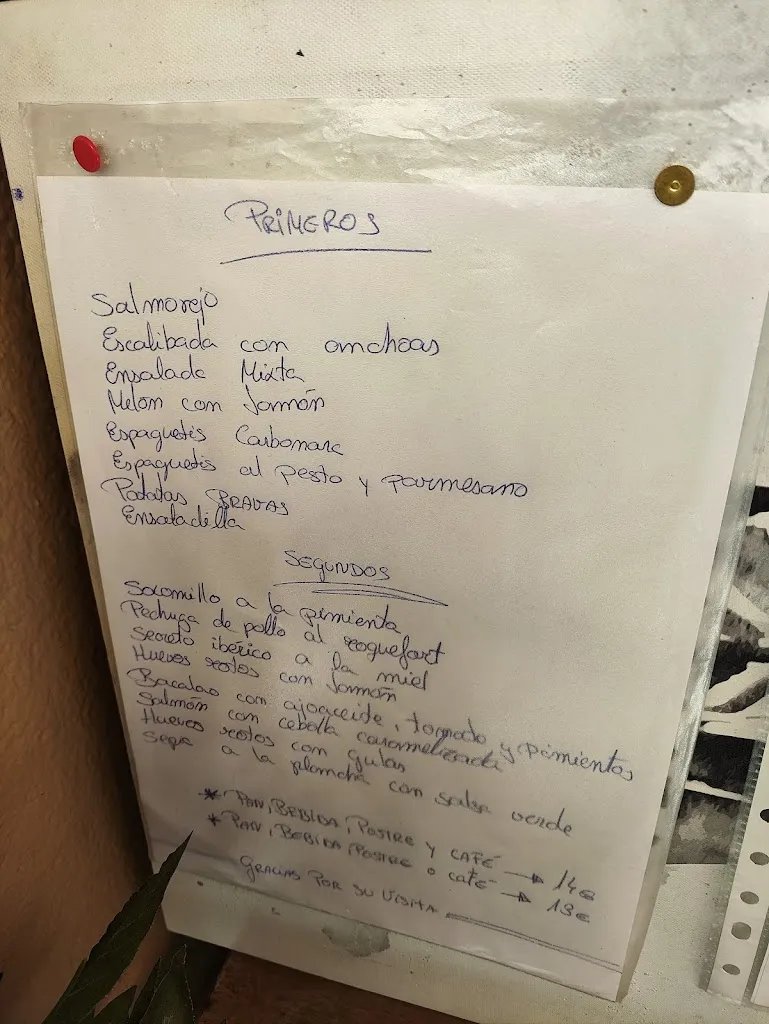 PRIMEROS
Salmorejo
Escalibada con anchoas
Ensalada Mixta
Melon con Jamón
Espaguetis Carbonara
Espaguetis al pesto y parmesano
Patatas BRAVAS
Ensaladilla
SEGUNDOS
Solomillo a la pimienta
Pechuga de pollo al roquefort
Secreto ibérico a la miel
Huevos rotos con Jamón
Bacalao con ajoaceite, tomate y pimientos
Salmón con cebolla caramelizada
Huevos rotos con gulas
Sepia a la plancha con salsa verde
* PAN, BEBIDA, POSTRE Y CAFÉ → 14€
* PAN, BEBIDA, POSTRE o café → 13€
GRACIAS POR SU VISITA